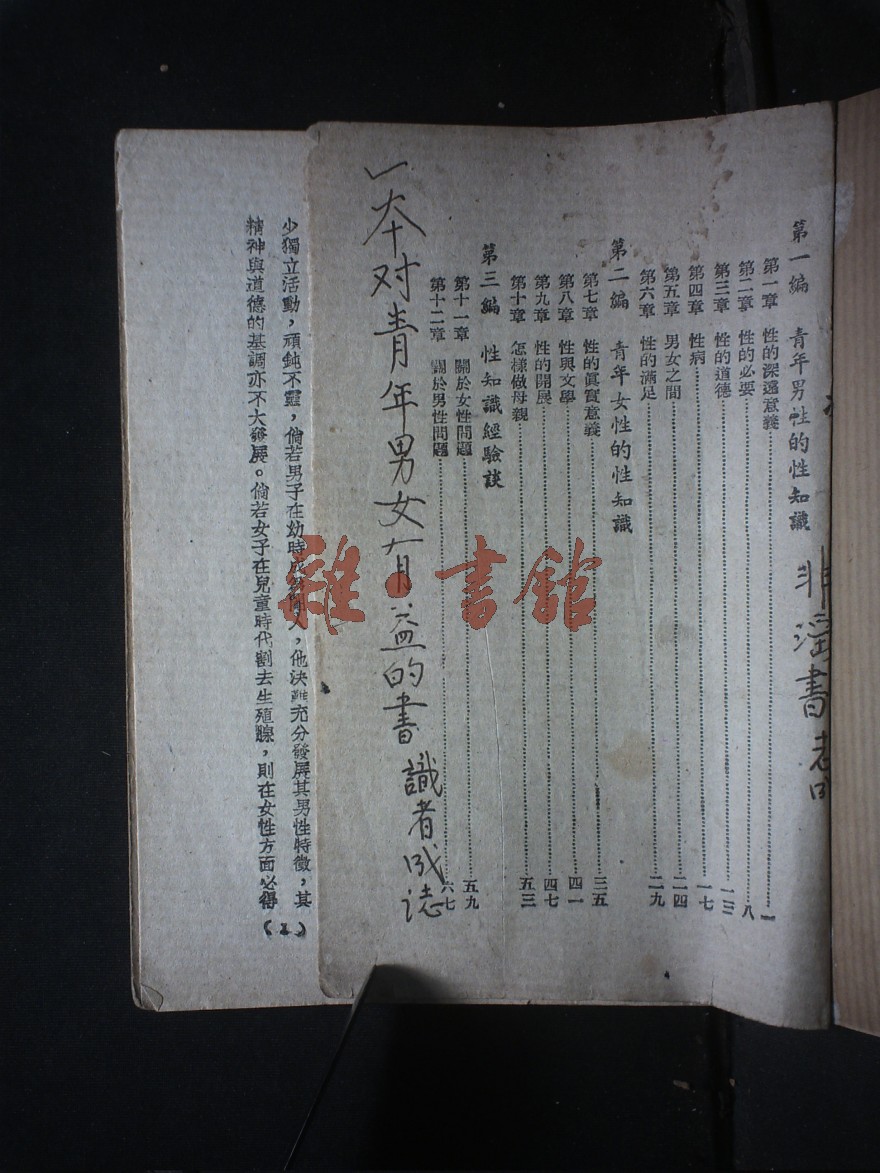 第一編 青年男性的性知識
第一章 性的深遠意義……一
第二章 性的必要……八
第三章 性的道德……一三
第四章 性病……一七
第五章 男女之間……二四
第六章 性的滿足……二九
第二編 青年女性的性知識
第七章 性的眞實意義……三五
第八章 性與文學……四一
第九章 性的開展……四七
第十章 怎樣做母親……五三
第三編 性知識經驗談
第十一章 關於女性問題……五九
第十二章 關於男性問題……六七
非淫書
一本对青年男女有益的書 識者 誌
少獨立活動，頑鈍不靈，倘若男子在幼時 人，他決難充分發展其男性特徵，其
精神與道德的基調亦不大發展。倘若女子在兒童時代割去生殖腺，則在女性方面必得
(2)
雜·書館